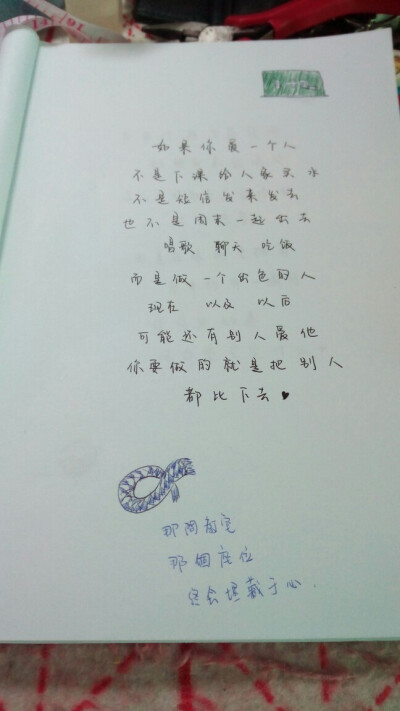 如果你爱一个人
不是下课给人家买水
不是短信发来发去
也不是周末一起出去
唱歌 聊天 吃饭
而是做一个出色的人
现在 以及 以后
可能还有别人爱他
你要做的就是把别人
都比下去 ♥
那間教室
那個座位
会埋藏于心.